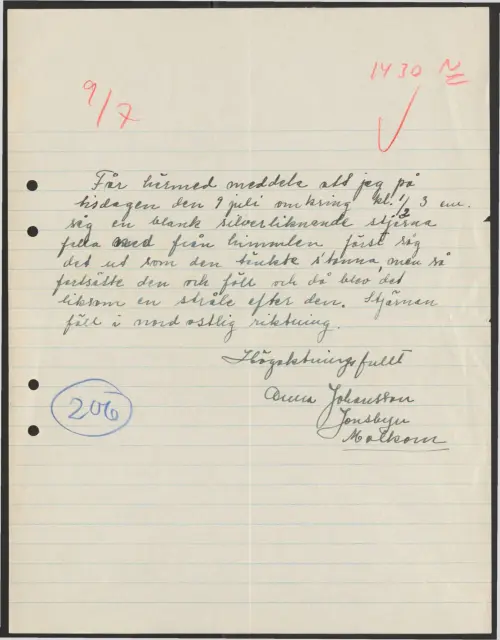 1430 N
9/7
Får härmed meddela att jag på
tisdagen den 9 juli omkring kl. 1/2 3 em.
såg en blank silverliknande stjärna
falla ned från himmlen först såg
det ut som den tänkte stanna, men så
fortsätte den och föll och då blev det
liksom en stråle efter den. Stjärnan
föll i nord ostlig riktning.
Högaktningsfullt
Anna Johansson
Jonsbyn
Molkom
206